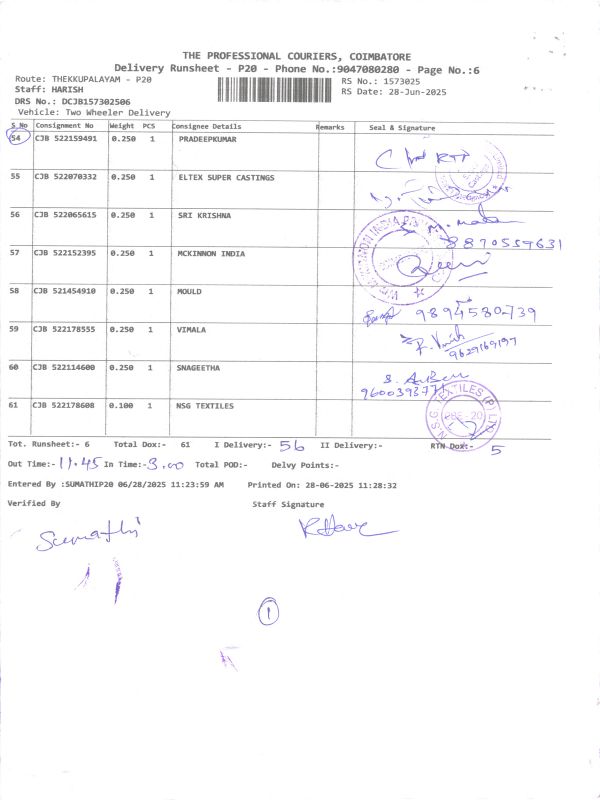 THE PROFESSIONAL COURIERS, COIMBATORE
Delivery Runsheet - P20 - Phone No.:9047080280 - Page No.:6
Route: THEKKUPALAYAM - P20
RS No.: 1573025
Staff: HARISH
RS Date: 28-Jun-2025
DRS No.: DCJB157302506
Vehicle: Two Wheeler Delivery
S No Consignment No Weight PCS Consignee Details Remarks Seal & Signature
54 CJB 522159491 0.250 1 PRADEEPKUMAR
55 CJB 522070332 0.250 1 ELTEX SUPER CASTINGS
56 CJB 522065615 0.250 1 SRI KRISHNA
8870559631
57 CJB 522152395 0.250 1 MCKINNON INDIA
58 CJB 521454910 0.250 1 MOULD
9894580739
59 CJB 522178555 0.250 1 VIMALA
9629169197
60 CJB 522114600 0.250 1 SNAGEETHA
61 CJB 522178608 0.100 1 NSG TEXTILES
N.S.G TEXTILES (P) LTD
Tot. Runsheet:- 6 Total Dox:- 61 I Delivery:- 56 II Delivery:- RTN Dox:- 5
Out Time:- 11.45 In Time:- 3.00 Total POD:- Delvy Points:-
Entered By :SUMATHIP20 06/28/2025 11:23:59 AM Printed On: 28-06-2025 11:28:32
Verified By Staff Signature
Sumathi
1